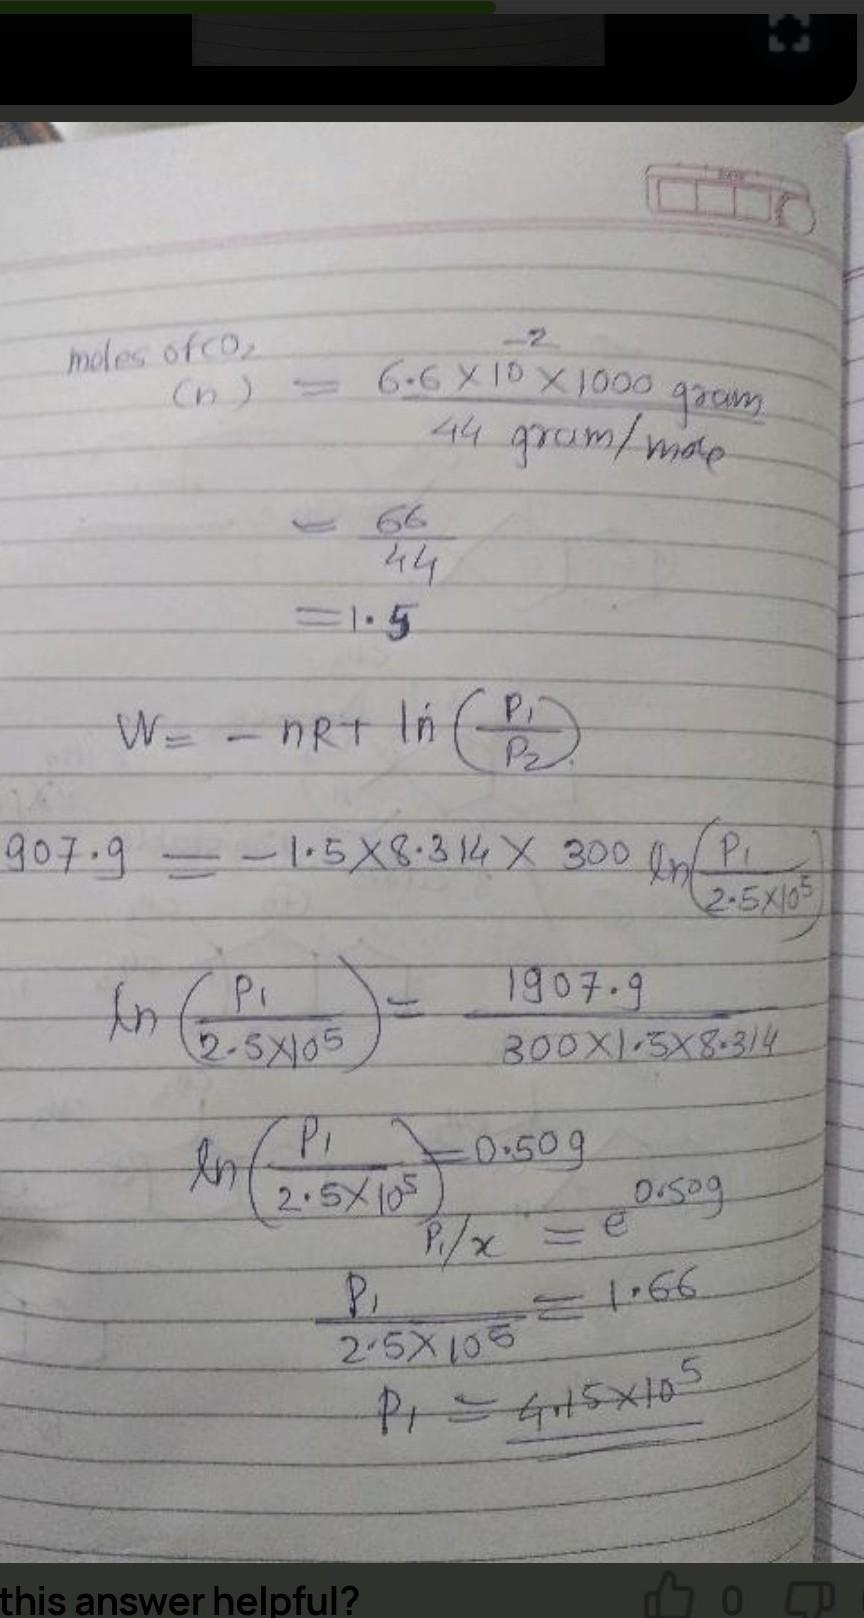 moles of CO₂
(n) = 6.6 × 10⁻² × 1000 gram
44 gram/mole
= 66
44
= 1.5
W = - nRT ln (P₁
P₂)
907.9 = -1.5×8.314× 300 ln(P₁
2.5×10⁵)
ln (P₁
2.5×10⁵) = 1907.9
300×1.5×8.314
ln (P₁
2.5×10⁵) = 0.509
P₁/x = e^0.509
P₁
2.5×10⁵ = 1.66
P₁ = 4.15×10⁵
this answer helpful?
0